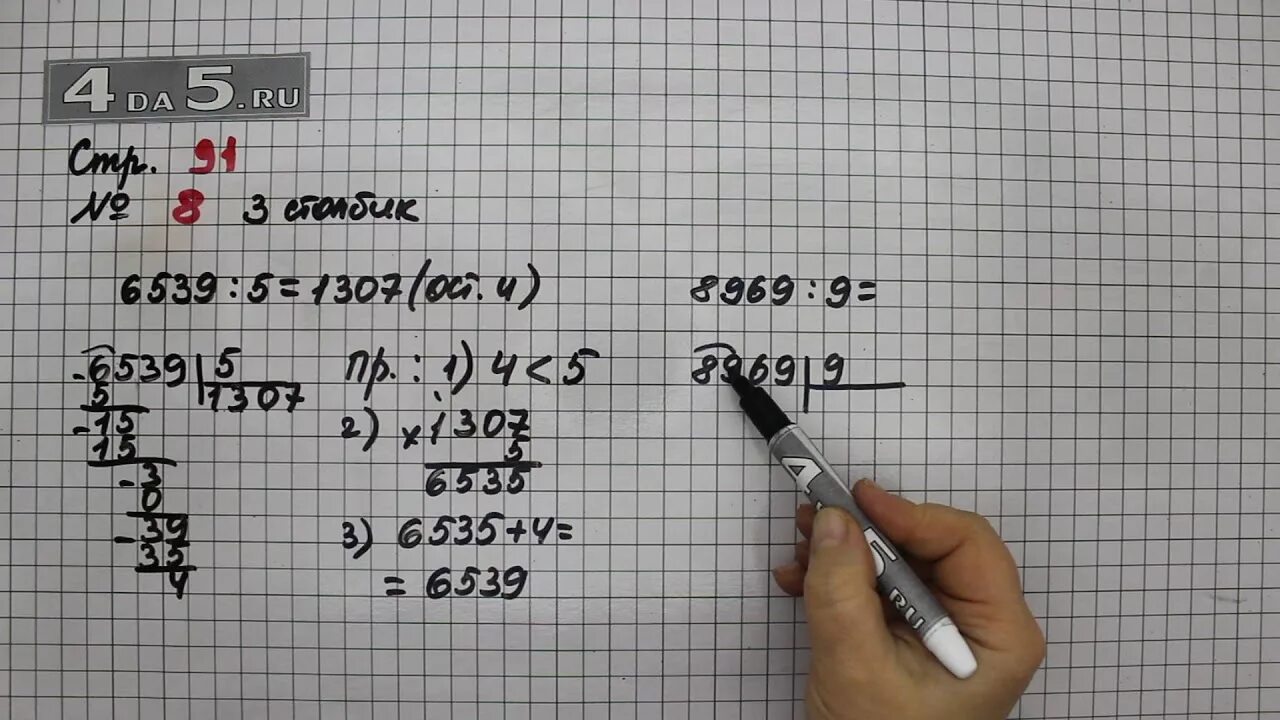 4DA5.RU
Стр. 91
№ 8 3 столбик
6539 : 5 = 1307 (ост. 4)
-6539 | 5
5 1307
-15
15
-3
0
-39
35
4
пр.: 1) 4 < 5
2) × 1307
5
6535
3) 6535 + 4 =
= 6539
8969 : 9 =
8969 | 9
4 5.RU